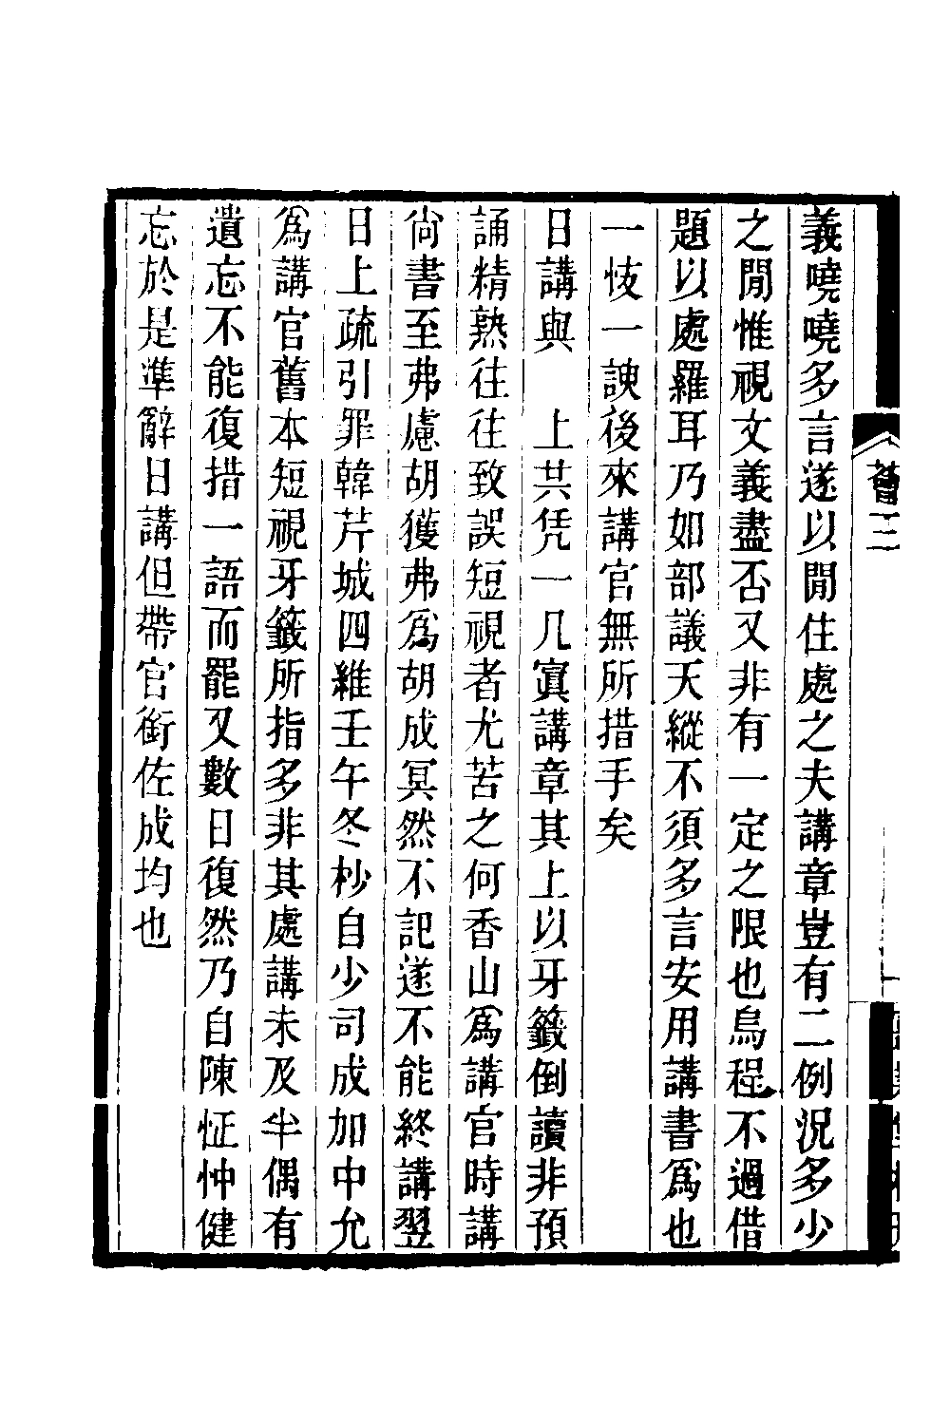 義嘵嘵多言遂以閒住處之夫講章豈有二例況多少
之閒惟視文義盡否又非有一定之限也烏程不過借
題以處羅耳乃如部議天縱不須多言安用講書爲也
一忮一諛後來講官無所措手矣
日講與　上共凭一几寘講章其上以牙籤倒讀非預
誦精熟往往致誤短視者尤苦之何香山爲講官時講
尙書至弗慮胡獲弗爲胡成冥然不記遂不能終講翌
日上疏引罪韓芹城四維壬午冬杪自少司成加中允
爲講官舊本短視牙籤所指多非其處講未及半偶有
遺忘不能復措一語而罷又數日復然乃自陳怔忡健
忘於是準辭日講但帶官銜佐成均也
薈三